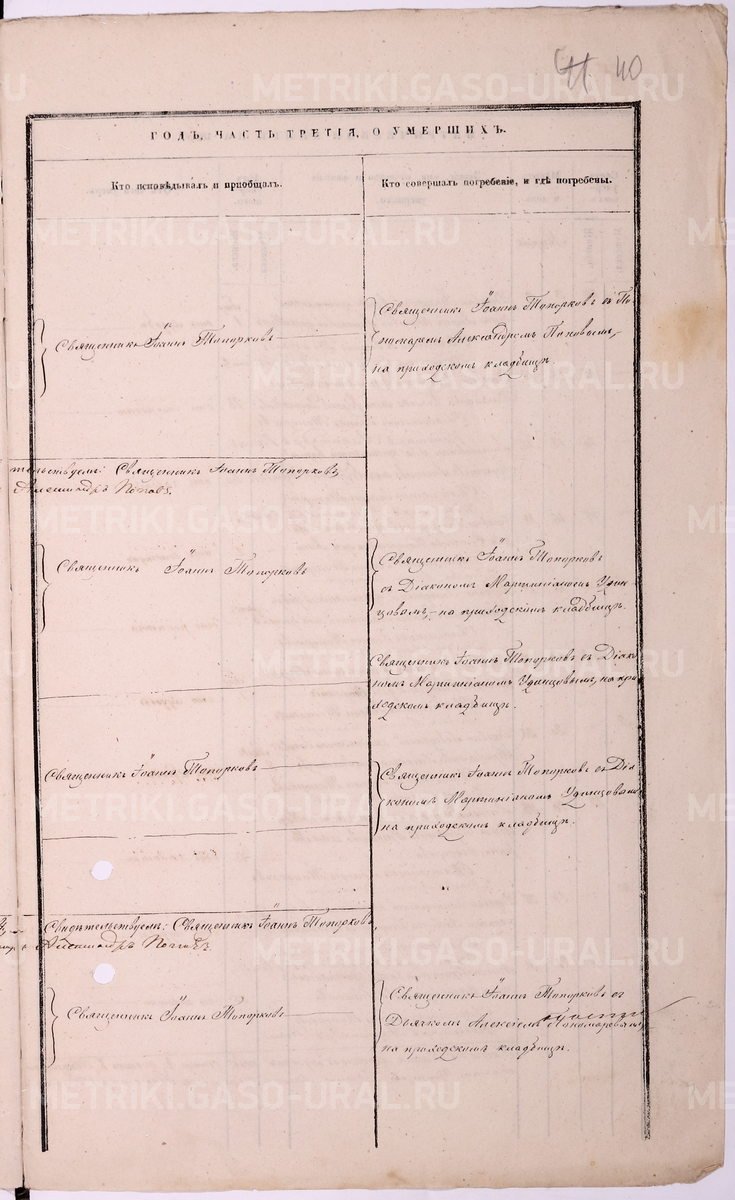 41. 40
ГОДЪ, ЧАСТЬ ТРЕТІЯ, О УМЕРШИХЪ.
Кто исповѣдывалъ и пріобщалъ.
Кто совершалъ погребеніе, и гдѣ погребены.
Священникъ Іоаннъ Топорковъ
Священникъ Іоаннъ Топорковъ съ По-
номаремъ Александромъ Поповымъ,
на приходскомъ кладбищѣ.
тельствуемъ: Священникъ Іоаннъ Топорковъ,
Александръ Поповъ.
Священникъ Іоаннъ Топорковъ
Священникъ Іоаннъ Топорковъ
съ Діакономъ Мартиніаномъ Удин-
цовымъ, на приходскомъ кладбищѣ.
Священникъ Іоаннъ Топорковъ съ Діако-
номъ Мартиніаномъ Удинцовымъ, на при-
ходскомъ кладбищѣ.
Священникъ Іоаннъ Топорковъ
Священникъ Іоаннъ Топорковъ съ Діа-
кономъ Мартиніаномъ Удинцовымъ
на приходскомъ кладбищѣ.
Свидѣтельствуемъ: Священникъ Іоаннъ Топорковъ,
Александръ Поповъ
Священникъ Іоаннъ Топорковъ
Священникъ Іоаннъ Топорковъ съ
Дьячкомъ Алексіемъ Пономаревымъ
на приходскомъ кладбищѣ.
METRIKI.GASO-URAL.RU